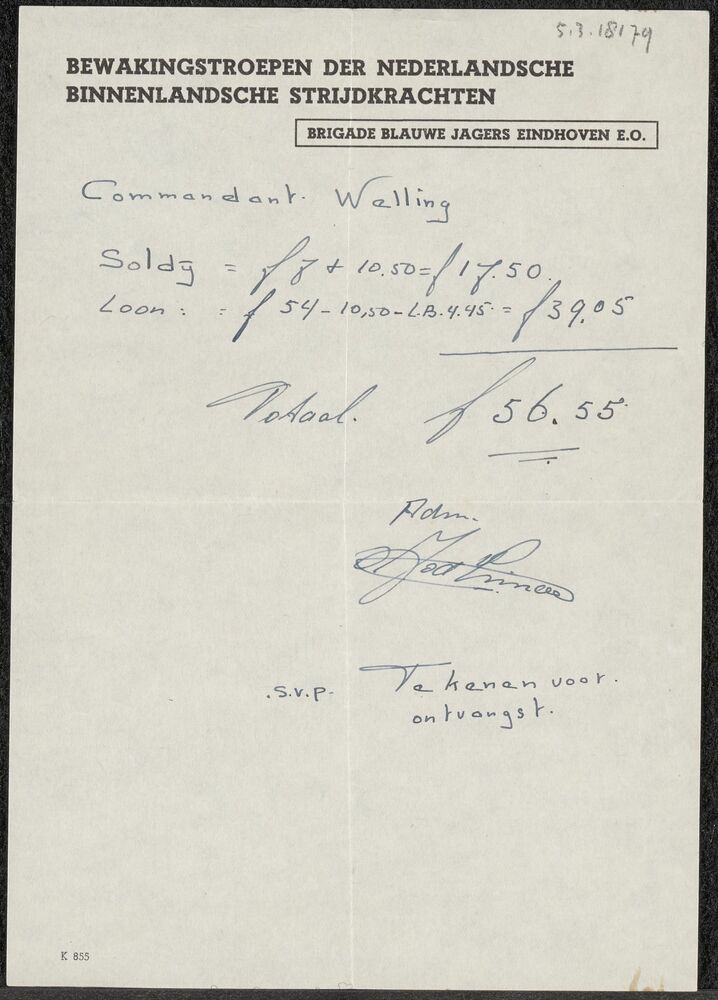 5.3.18179
BEWAKINGSTROEPEN DER NEDERLANDSCHE
BINNENLANDSCHE STRIJDKRACHTEN
BRIGADE BLAUWE JAGERS EINDHOVEN E.O.
Commandant. Welling
Soldij = f 7 + 10.50 = f 17.50.
Loon : = f 54 - 10,50 - L.B. 4.45. = f 39.05
Totaal. f 56.55
Adm.
.S.V.P. Tekenen voor.
ontvangst.
K 855